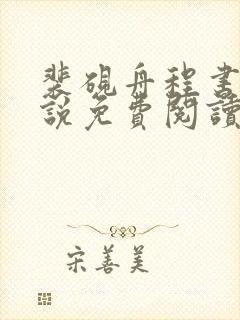 裴硯舟程書
說免費閱讀
宋善美